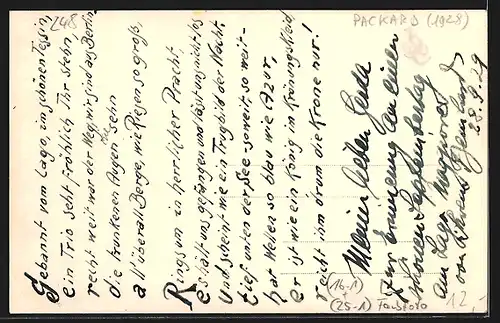 Gebannt vom Lago, im schönen Tessin,
ein Trio seht fröhlich Ihr stehn,
recht weit war der Weg, wir sind aus Berlin
die trunkenen Augen sehn
all überall Berge, wie Riesen so groß,
Ringsum in herrlicher Pracht
es hält uns gefangen und lässt uns nicht los
Und scheint wie ein Trugbild der Nacht.
tief unten der See - so weit, so weit -
hat Wellen so blau wie Azur,
er ist wie ein König im Krönungskleid
reicht ihm drum die Krone nur!
Meiner lieben
Zur Erinnerung an einen
schönen
am Lago Maggiore
von
28.9.29
248
PACKARD (1928)
(16-1)
(25-1) Fausfoto
12,-